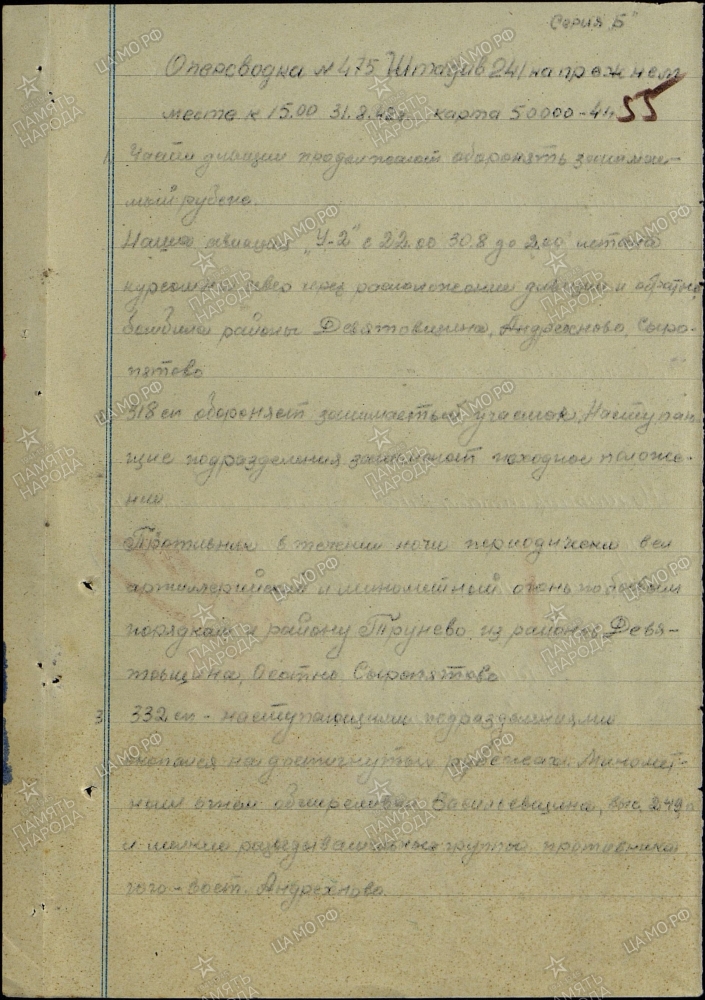 Серия Б"
Оперсводка № 475 Штадив 241 на прежнем
месте к 15.00 31.8.42г. карта 50000-44
55
1. Части дивизии продолжают оборонять занимае-
мый рубеж.
Наша авиация „У-2" с 22.00 30.8 до 2.00 летала
курсом на север через расположение дивизии и обратно
бомбила районы Девятовщина, Андрехново, Сыро-
пятово
318 сп обороняет занимаемый участок. Наступаю-
щие подразделения занимают исходное положе-
ние
Противник в течении ночи периодически вел
артиллерийский и минометный огонь по боевым
порядкам и району Трунево из районов Девя-
товщина, Осотно Сыропятово
3. 332 сп - наступающими подразделениями
окопался на достигнутых рубежах. Миномет-
ным огнем обстреливал Васильевщина, выс. 249,0
и мелкие разведывательные группы противника
юго-вост. Андрехново.